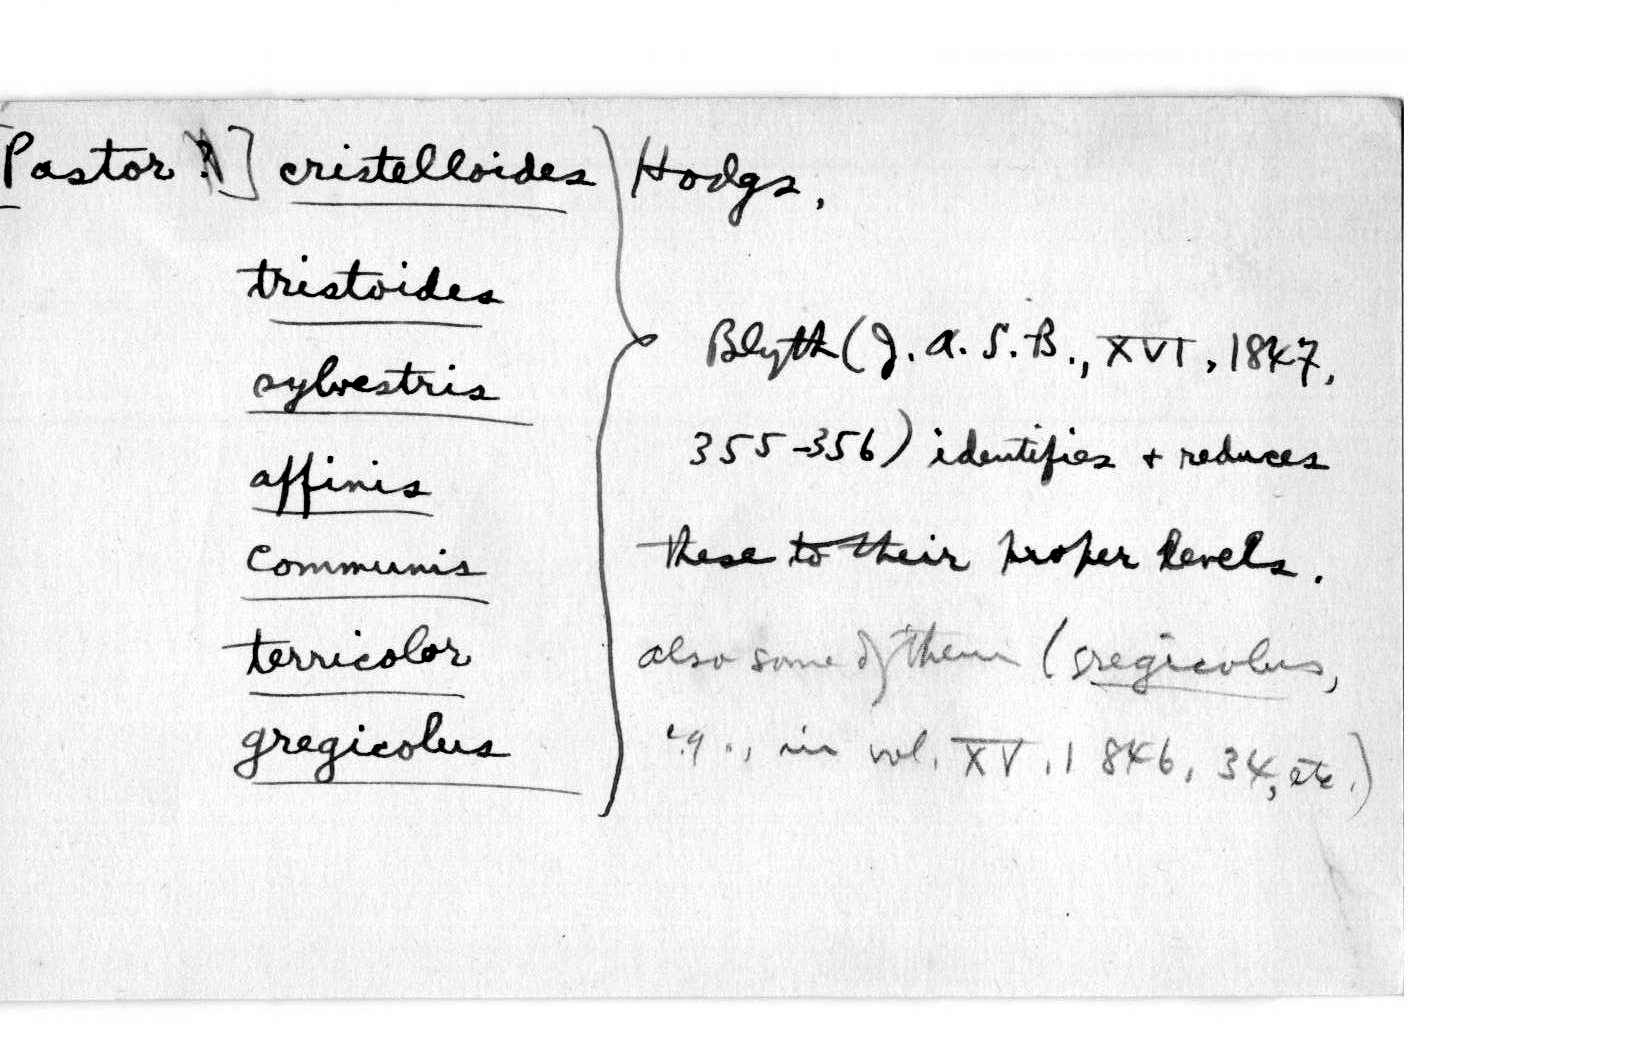 [Pastor ?] cristelloides Hodgs.
tristoides
sylvestris
affinis
communis
terricolor
gregicolus
Blyth (J. A. S. B., XVI, 1847,
355-356) identifies + reduces
these to their proper levels.
also some of them (gregicolus,
e.g., in vol. XV, 1846, 34, etc.)